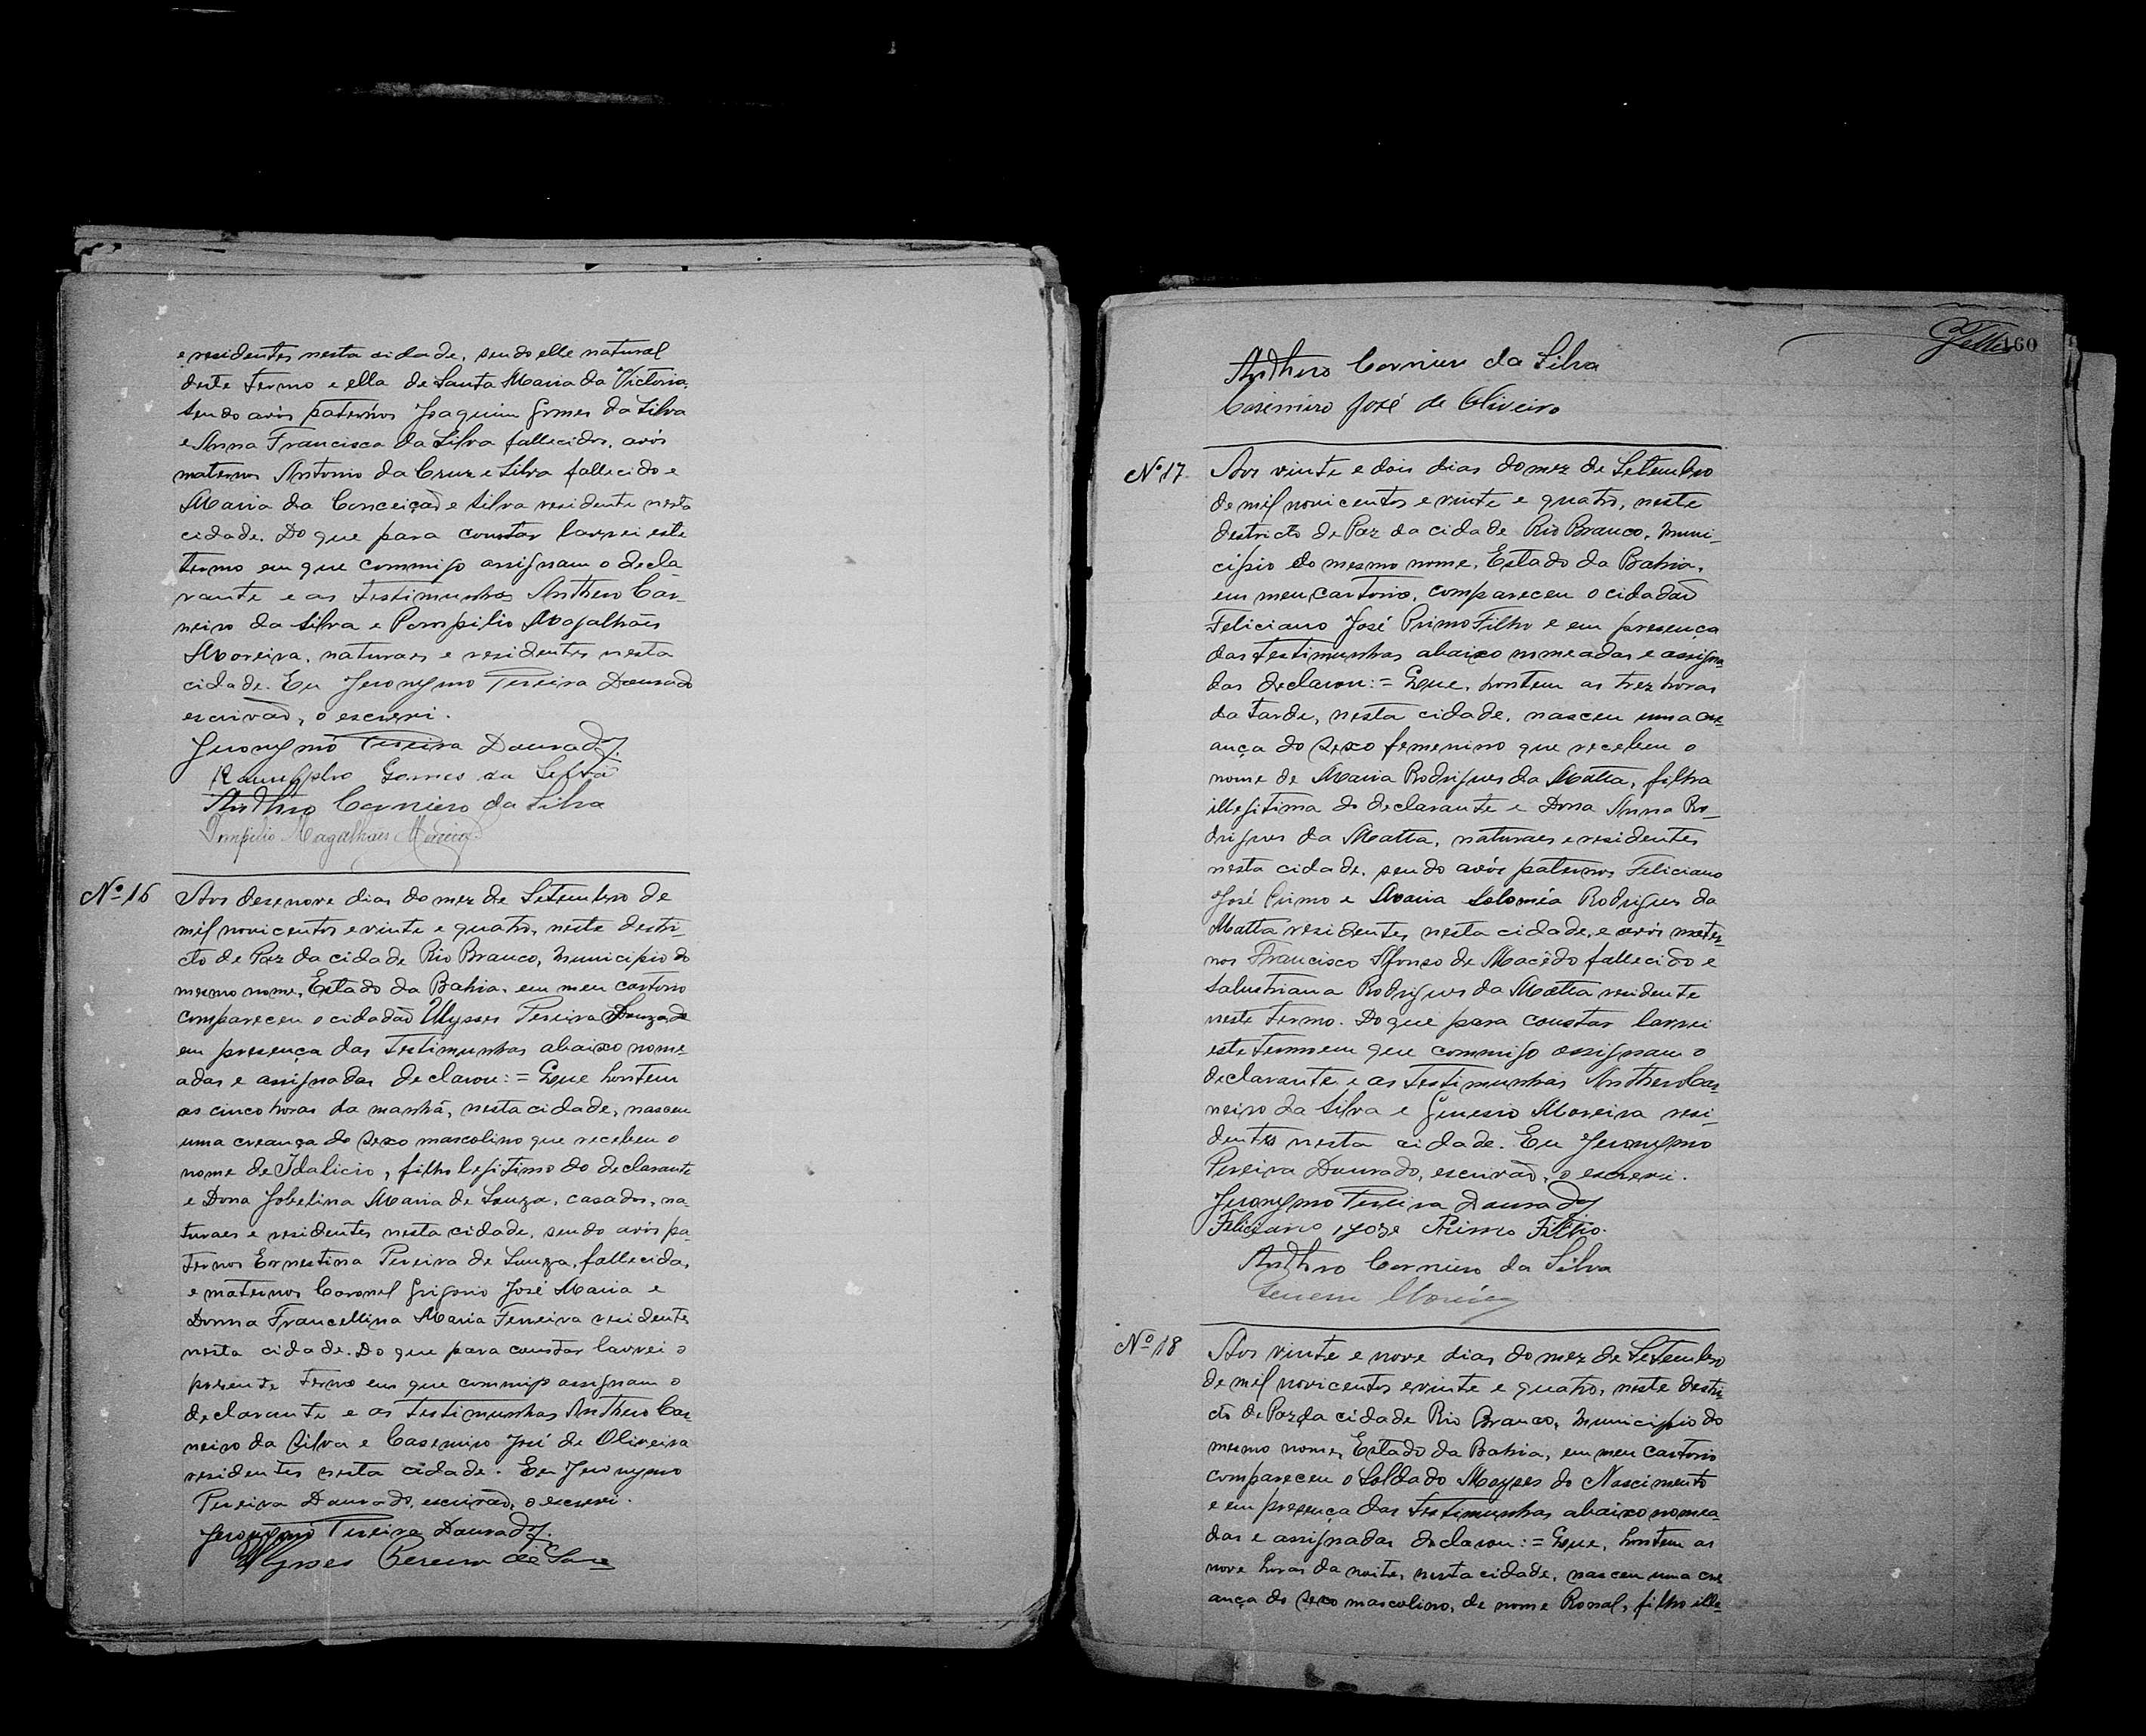 e residentes nesta cidade, sendo elle natural
deste termo e ella de Santa Maria da Victoria,
sendo avós paternos Joaquim Gomes da Silva
e Anna Francisca da Silva fallecidos, avós
maternos Antonio da Cruz e Silva fallecido e
Maria da Conceição e Silva residente nesta
cidade. Do que para constar lavrei este
termo em que commigo assignam o decla-
rante e as testimunhas Anthero Car-
neiro da Silva e Pompilio Magalhães
Moreira, naturaes e residentes nesta
cidade. Eu Jeronymo Pereira Dourado
escrivão, o escrevi.
Jeronymo Pereira Dourado
Gomes da Silva
Anthero Carneiro da Silva
Pompilio Magalhães Moreira
Nº 16
Aos desenove dias do mez de Setembro de
mil novicentos e vinte e quatro, neste destri-
cto de Paz da cidade Rio Branco, Municipio do
mesmo nome, Estado da Bahia, em meu cartorio
compareceu o cidadão Ulysses Pereira Souza de
em presença das testimunhas abaixo nome-
adas e assignadas declarou: = Que hontem
as cinco horas da manhã, nesta cidade, nasceu
uma creança do sexo mascolino que recebeu o
nome de Idalicio, filho legitimo do declarante
e Dona Jobelina Maria de Souza, casados, na-
turaes e residentes nesta cidade, sendo avós pa-
ternos Ernestina Pereira de Souza, fallecida,
e maternos Coronel Grigorio José Maria e
Donna Francellina Maria Ferreira residentes
nesta cidade. Do que para constar lavrei o
presente termo em que commigo assignam o
declarante e as testimunhas Anthero Car-
neiro da Silva e Casemiro José de Oliveira
residentes nesta cidade. Eu Jeronymo
Pereira Dourado, escrivão, o escrevi.
Jeronymo Pereira Dourado
Ulysses Pereira de
160
Anthero Carneiro da Silva
Casimiro José de Oliveira
Nº 17
Aos vinte e dois dias do mez de Setembro
de mil novicentos e vinte e quatro, neste
destricto de Paz da cidade Rio Branco, Muni-
cipio do mesmo nome, Estado da Bahia,
em meu cartorio, compareceu o cidadão
Feliciano José Primo Filho e em presença
das testimunhas abaixo nomeadas e assigna-
das declarou: = Que, hontem as trez horas
da tarde, nesta cidade, nasceu uma cre-
ança do sexo femenino que recebeu o
nome de Maria Rodrigues da Matta, filha
illegitima do declarante e Dona Anna Ro-
drigues da Matta, naturaes e residentes
nesta cidade, sendo avós paternos Feliciano
José Primo e Maria Soloméa Rodrigues da
Matta residentes nesta cidade, e avós mater-
nos Francisco Afonso de Macêdo fallecido e
Salustriana Rodrigues da Matta residente
neste termo. Do que para constar lavrei
este termo em que commigo assignam o
declarante e as testimunhas Anthero Car-
neiro da Silva e Genesio Moreira resi-
dentes nesta cidade. Eu Jeronymo
Pereira Dourado, escrivão, o escrevi.
Jeronymo Pereira Dourado
Feliciano Joze Primo Filho.
Anthero Carneiro da Silva
Genesio Moreira
Nº 18
Aos vinte e nove dias do mez de Setembro
de mil novicentos e vinte e quatro, neste destri-
cto de Paz da cidade Rio Branco, Municipio do
mesmo nome, Estado da Bahia, em meu cartorio
compareceu o Soldado Moyses do Nascimento
e em presença das testimunhas abaixo nomea-
das e assignadas declarou: = Que, hontem as
nove horas da noite, nesta cidade, nasceu uma cre-
ança do sexo mascolino, de nome Roval, filho ille-